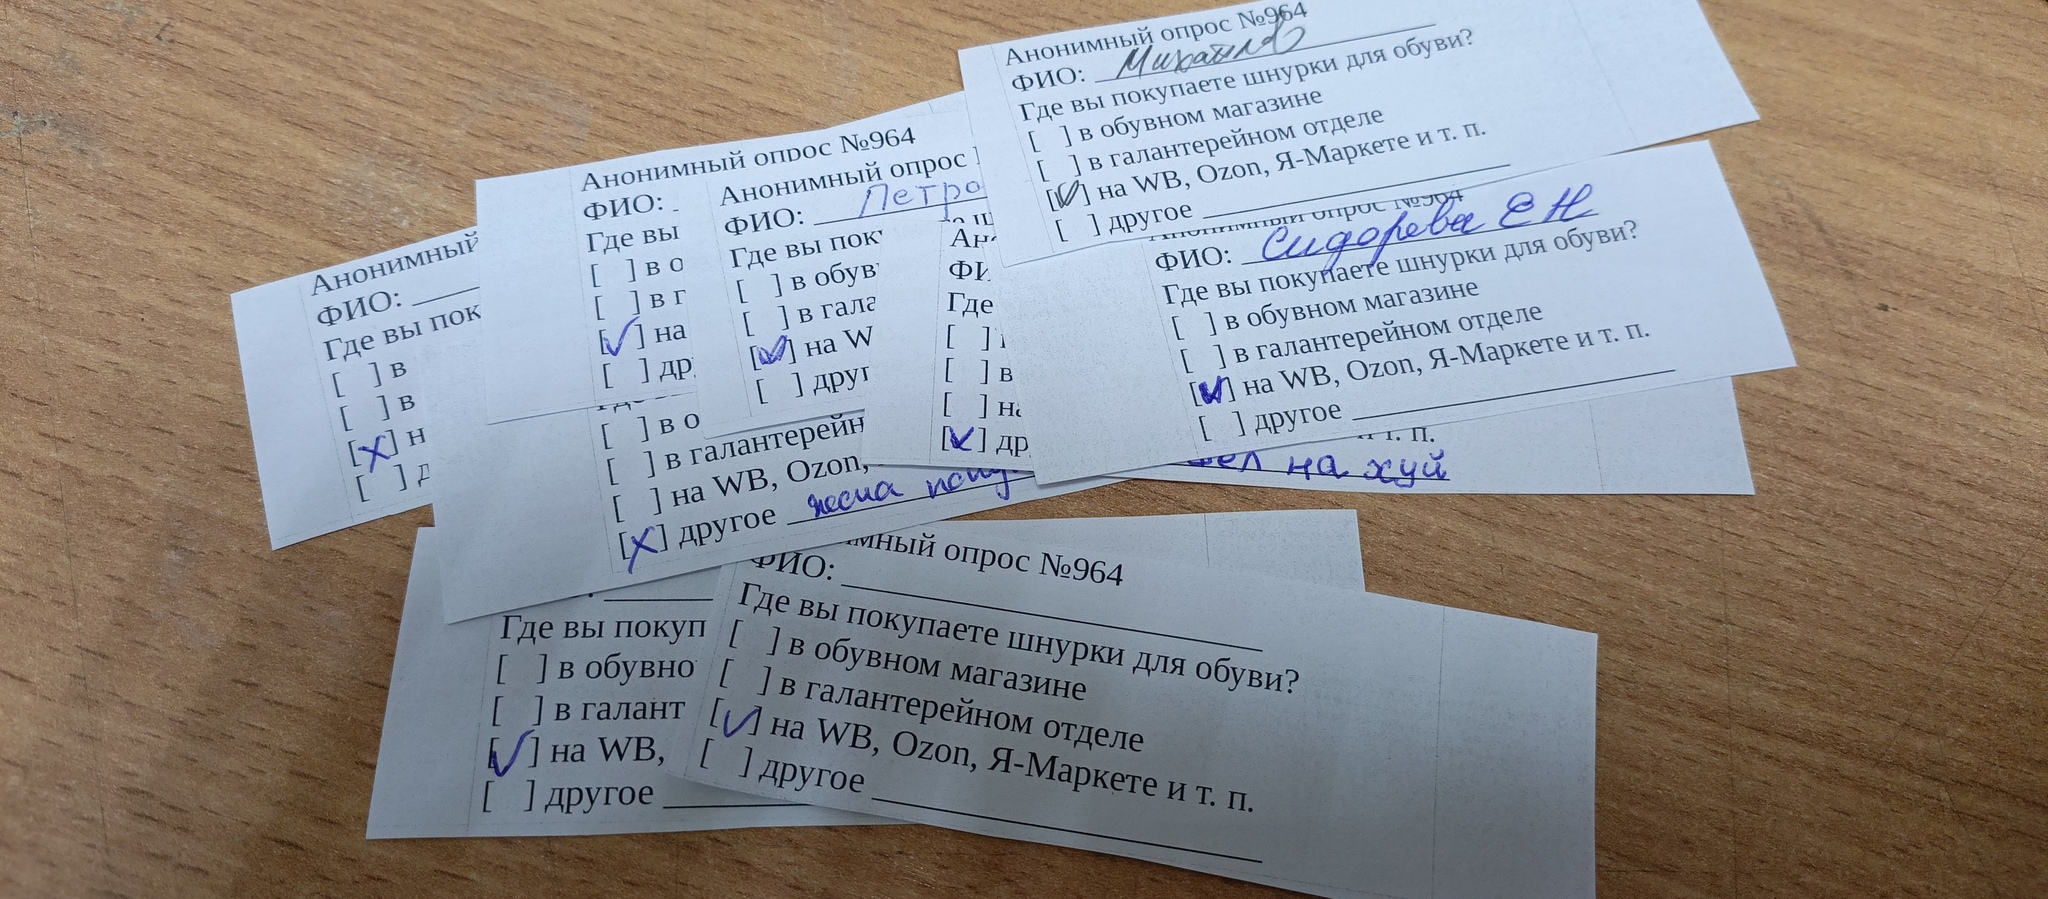 Анонимный опрос №964
ФИО: Михайлов
Где вы покупаете шнурки для обуви?
[ ] в обувном магазине
[ ] в галантерейном отделе
[V] на WB, Ozon, Я-Маркете и т. п.
[ ] другое
Анонимный опрос №964
ФИО: Сидорева Е Н
Где вы покупаете шнурки для обуви?
[ ] в обувном магазине
[ ] в галантерейном отделе
[V] на WB, Ozon, Я-Маркете и т. п.
[ ] другое
Анонимный опрос №964
ФИО:
Где вы
[ ] в о
[ ] в г
[V] на
[ ] др
Анонимный опрос
ФИО: Петро
Где вы пок
[ ] в обув
[ ] в гала
[V] на W
[ ] друг
Ан
ФИ
Где
[ ]
[ ] в
[ ] на
[V] др
т. п.
на хуй
Анонимный
ФИО:
Где вы пок
[ ] в
[ ] в
[X] н
[ ] д
[ ] в о
[ ] в галантерейн
[ ] на WB, Ozon,
[X] другое
Где вы покуп
[ ] в обувно
[ ] в галант
[V] на WB,
[ ] другое
мный опрос №964
ФИО:
Где вы покупаете шнурки для обуви?
[ ] в обувном магазине
[ ] в галантерейном отделе
[V] на WB, Ozon, Я-Маркете и т. п.
[ ] другое